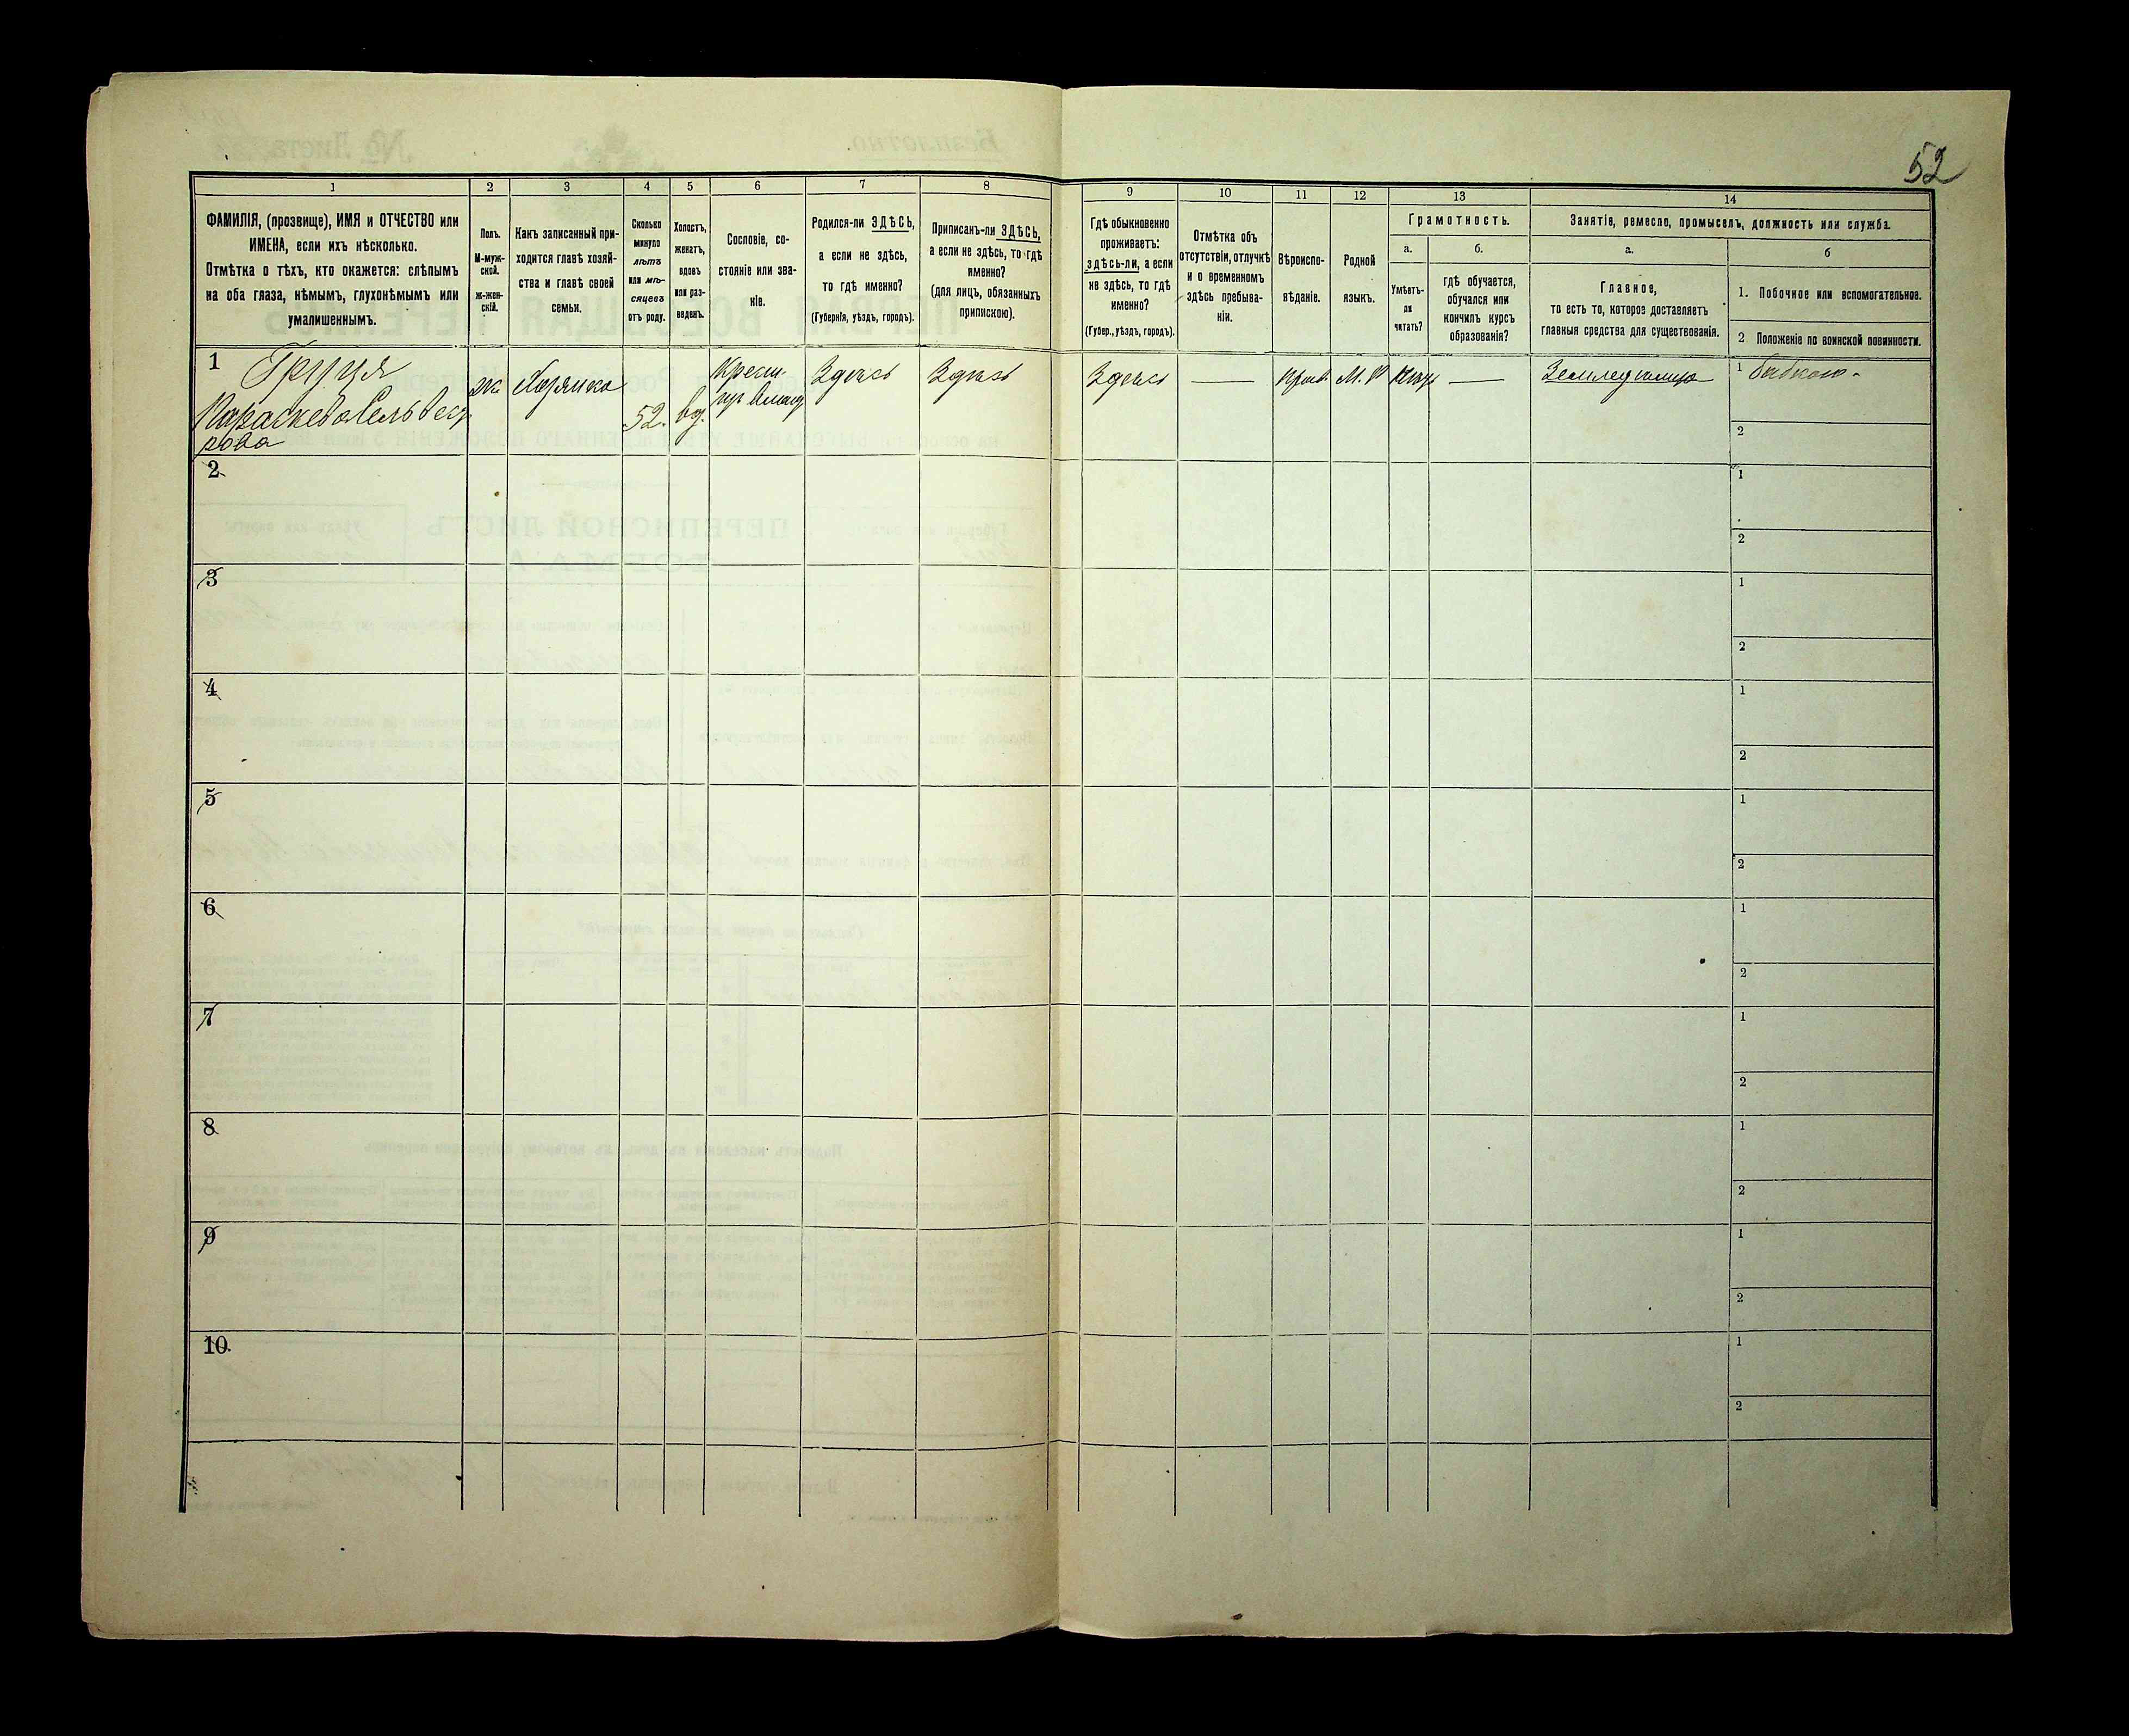 52
1
2
3
4
5
6
7
8
9
10
11
12
13
14
ФАМИЛІЯ, (прозвище), ИМЯ и ОТЧЕСТВО или
ИМЕНА, если ихъ нѣсколько.
Отмѣтка о тѣхъ, кто окажется: слѣпымъ
на оба глаза, нѣмымъ, глухонѣмымъ или
умалишеннымъ.
Полъ.
М-муж-
ской.
ж-жен-
скій.
Какъ записанный при-
ходится главѣ хозяй-
ства и главѣ своей
семьи.
Сколько
минуло
лѣтъ
или мѣ-
сяцевъ
отъ роду.
Холостъ,
женатъ,
вдовъ
или раз-
веденъ.
Сословіе, со-
стояніе или зва-
ніе.
Родился-ли ЗДѢСЬ,
а если не здѣсь,
то гдѣ именно?
(Губернія, уѣздъ, городъ).
Приписанъ-ли ЗДѢСЬ,
а если не здѣсь, то гдѣ
именно?
(для лицъ, обязанныхъ
припискою).
Гдѣ обыкновенно
проживаетъ:
здѣсь-ли, а если
не здѣсь, то гдѣ
именно?
(Губер., уѣздъ, городъ).
Отмѣтка объ
отсутствіи, отлучкѣ
и о временномъ
здѣсь пребыва-
ніи.
Вѣроиспо-
вѣданіе.
Родной
языкъ.
Грамотность.
а.
Умѣетъ-
ли
читать?
б.
гдѣ обучается,
обучался или
кончилъ курсъ
образованія?
Занятіе, ремесло, промыселъ, должность или служба.
а.
Главное,
то есть то, которое доставляетъ
главныя средства для существованія.
б
1. Побочное или вспомогательное.
2 Положеніе по воинской повинности.
1 Груця
Параскева Сельвест
рова
ж
52.
вд.
Крест.
Здѣсь
Здѣсь
Здѣсь
—
прав.
М. Р
—
1
2
2
1
2
3
1
2
4
1
2
5
1
2
6
1
2
7
1
2
8
1
2
9
1
2
10
1
2